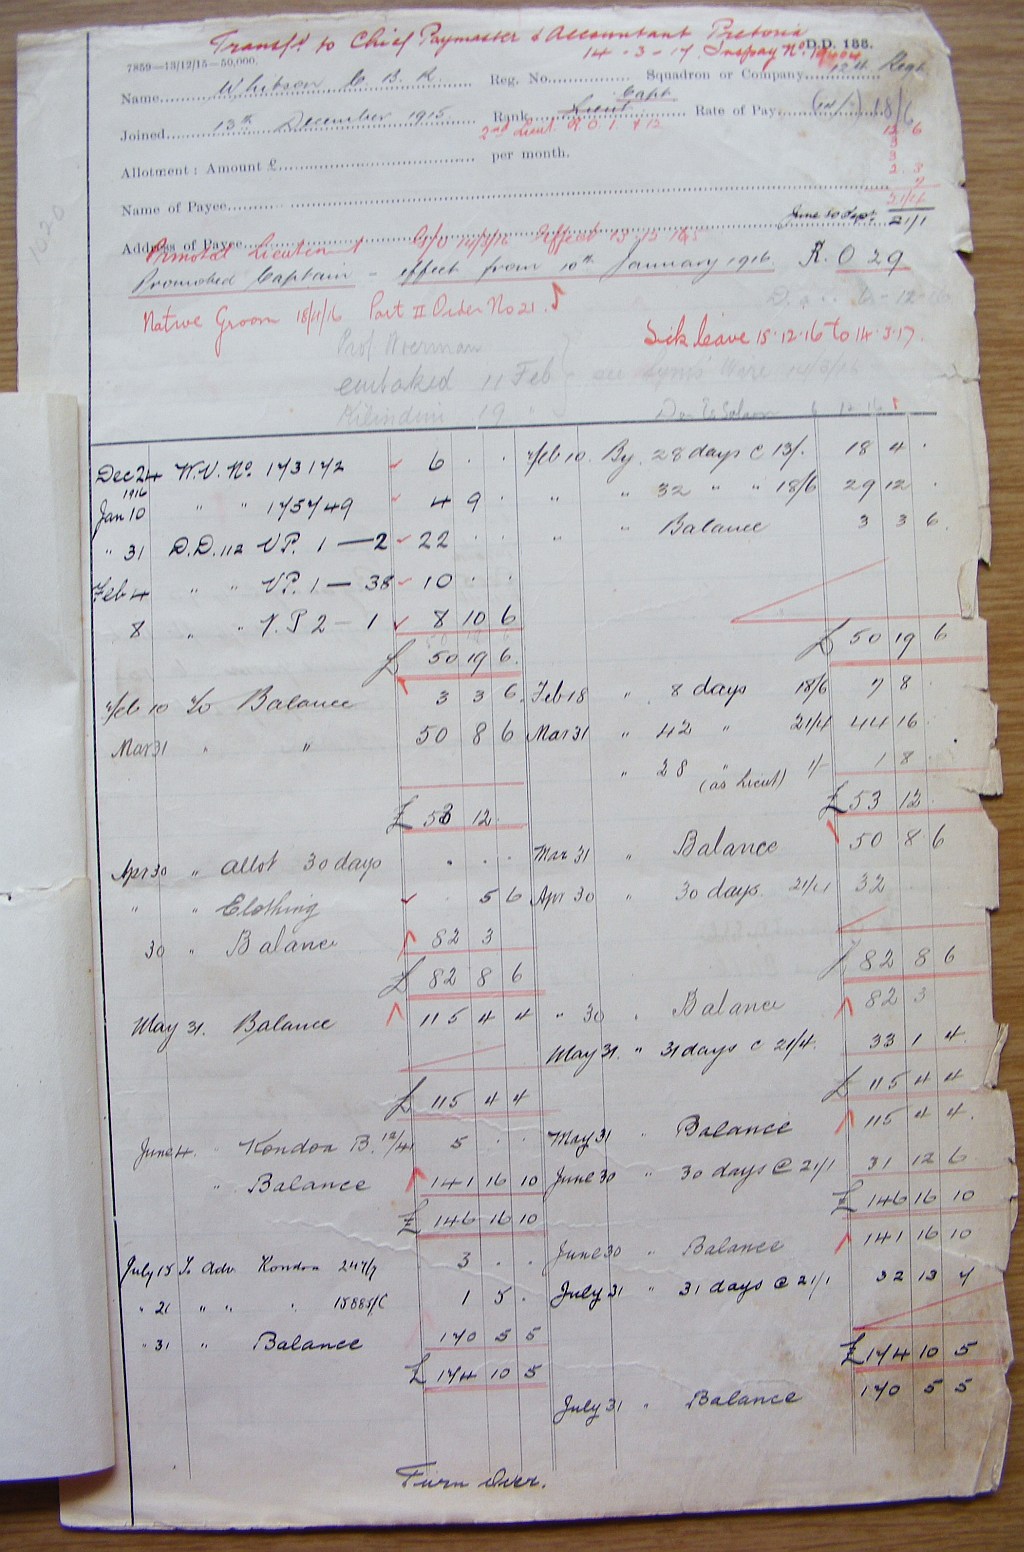 Transf'd to Chief Paymaster & Accountant Pretoria
14-3-17. Inspay No.
D.D. 133.
7859—13/12/15—50,000.
Name Whitson C. B. R. Reg. No. Squadron or Company 12th Regt
Capt
Joined 13th December 1915. Rank Lieut Rate of Pay (21/4) 18/6
2nd Lieut R.O. 1 4/12
12 6
3
3
2. 8
Allotment: Amount £ per month.
21/4
Name of Payee
June to Sept. 21/1
Address of Payee
Promoted Lieutenant G/O 14/3/16 Effect 13-12-1915
Promoted Captain - effect from 10th January 1916. R.O 29
Native Groom 18/1/16 Part II Order No 21.
Sick leave 15.12.16 to 14.3.17.
embaked 11 Feb
Kilindini 19 "
Dec 24 W.V. No. 173172 6 . . Feb 10. By 28 days @ 13/. 18 4 .
1916
Jan 10 " " 175749 4 9 . " " 32 " " 18/6 29 12 .
" 31 D.D. 112 V.P. 1—2 22 . . " " Balance 3 3 6
Feb 4 " " V.P. 1—38 10 . .
8 " " V.P 2—1 8 10 6
£ 50 19 6 £ 50 19 6
Feb 10 To Balance 3 3 6 Feb 18 " 8 days 18/6 7 8 .
Mar 31 " " 50 8 6 Mar 31 " 42 " 21/4 44 16
" 28 " (as Lieut) 1/- 1 8
£ 53 12 £ 53 12
Mar 31 " Balance 50 8 6
Apr 30 " Allot 30 days . . . Apr 30 " 30 days. 21/4 32
" " Clothing . 5 6
30 " Balance 82 3
£ 82 8 6 £ 82 8 6
May 31. Balance 115 4 4 " 30 " Balance 82 3
May 31. " 31 days @ 21/4. 33 1 4
£ 115 4 4 £ 115 4 4
June 4. " Kondoa B. 12/41 5 . . May 31 " Balance 115 4 4.
" Balance 141 16 10 June 30 " 30 days @ 21/1 31 12 6
£ 146 16 10 £ 146 16 10
June 30 " Balance 141 16 10
July 15 To Adv. Kondoa 247/7 3 . . July 31 " 31 days @ 21/1 32 13 7
" 21 " " " 15885/C 1 5 .
" 31 " Balance 170 5 5
£ 174 10 5 £ 174 10 5
July 31 " Balance 170 5 5
Turn Over.